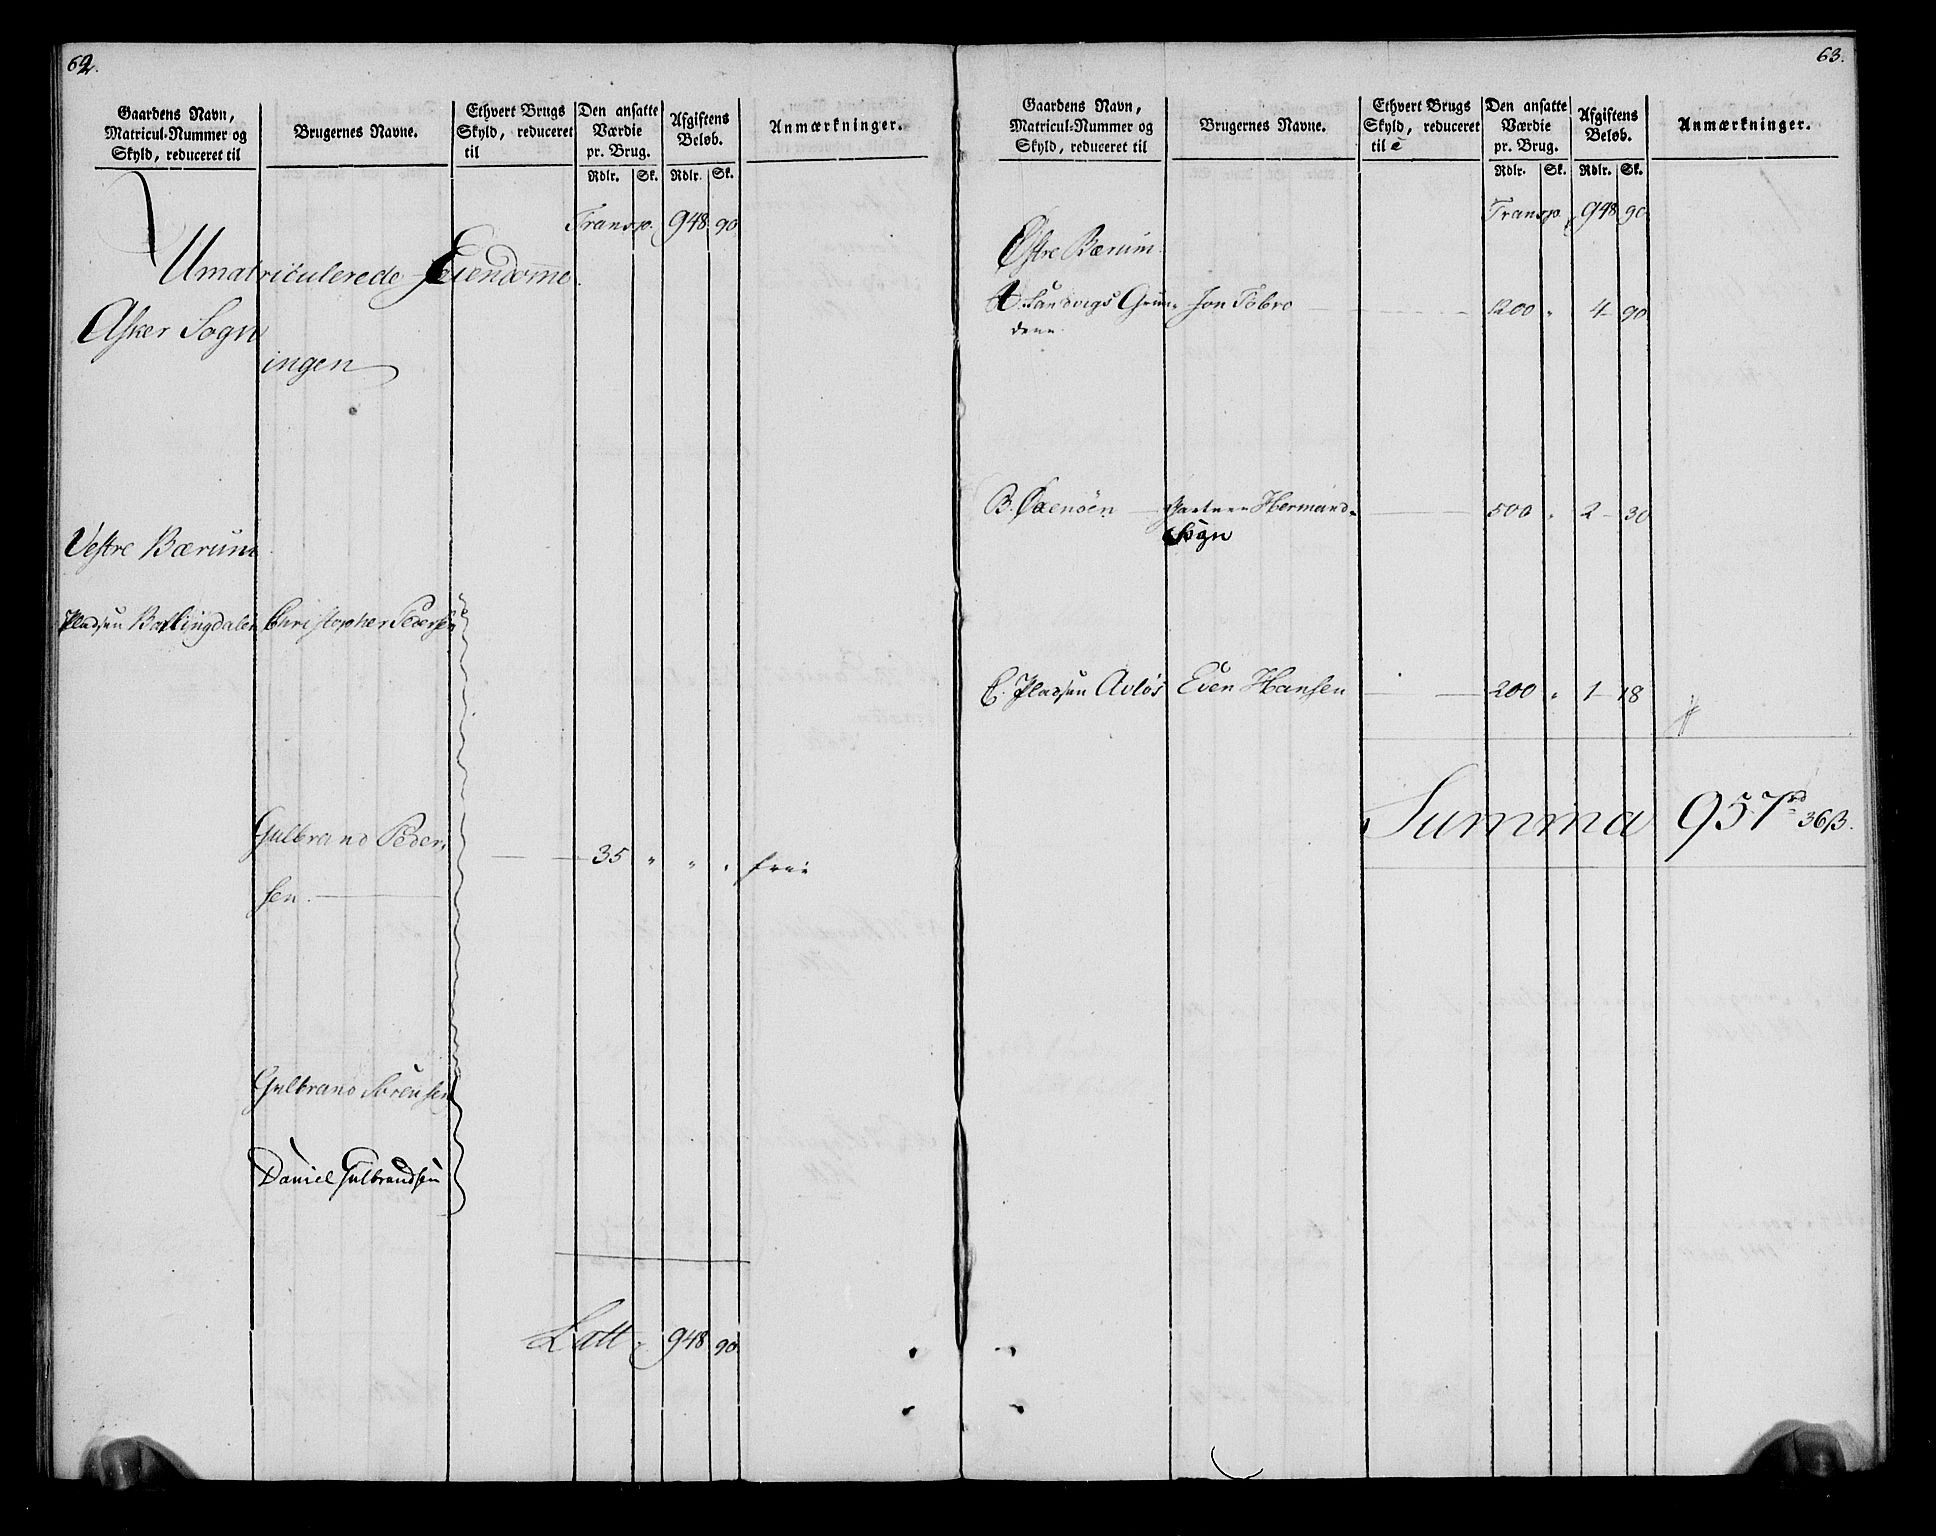 62.
Gaardens Navn, Matricul-Nummer og Skyld, reduceret til
Brugernes Navne.
Ethvert Brugs Skyld, reduceret til
Den ansatte Værdie pr. Brug.
Afgiftens Beløb.
Anmærkninger.
Rdlr. Sk. Rdlr. Sk.
Transp. 948 90
Umatriculerede Eiendomme
Asker Sogn
ingen
Vestre Bærum
Pladsen Christopher Pedersen
Gulbrand Peder-
sen. 35 " " " frie
Gulbrand Sörensen
Daniel Gulbrandsen
Latt 948 90
63.
Gaardens Navn, Matricul-Nummer og Skyld, reduceret til
Brugernes Navne.
Ethvert Brugs Skyld, reduceret til
Den ansatte Værdie pr. Brug.
Afgiftens Beløb.
Anmærkninger.
Rdlr. Sk. Rdlr. Sk.
Transp. 948 90
Østre Bærum
A. Sandvigs Grun- Jon Tobro 1200 " 4 90
dene
B. Øxenöen Hermand- 500 " 2 30
Pladsen Avløs Even Hansen 200 " 1 18
Summa 957 rd 36 ß.